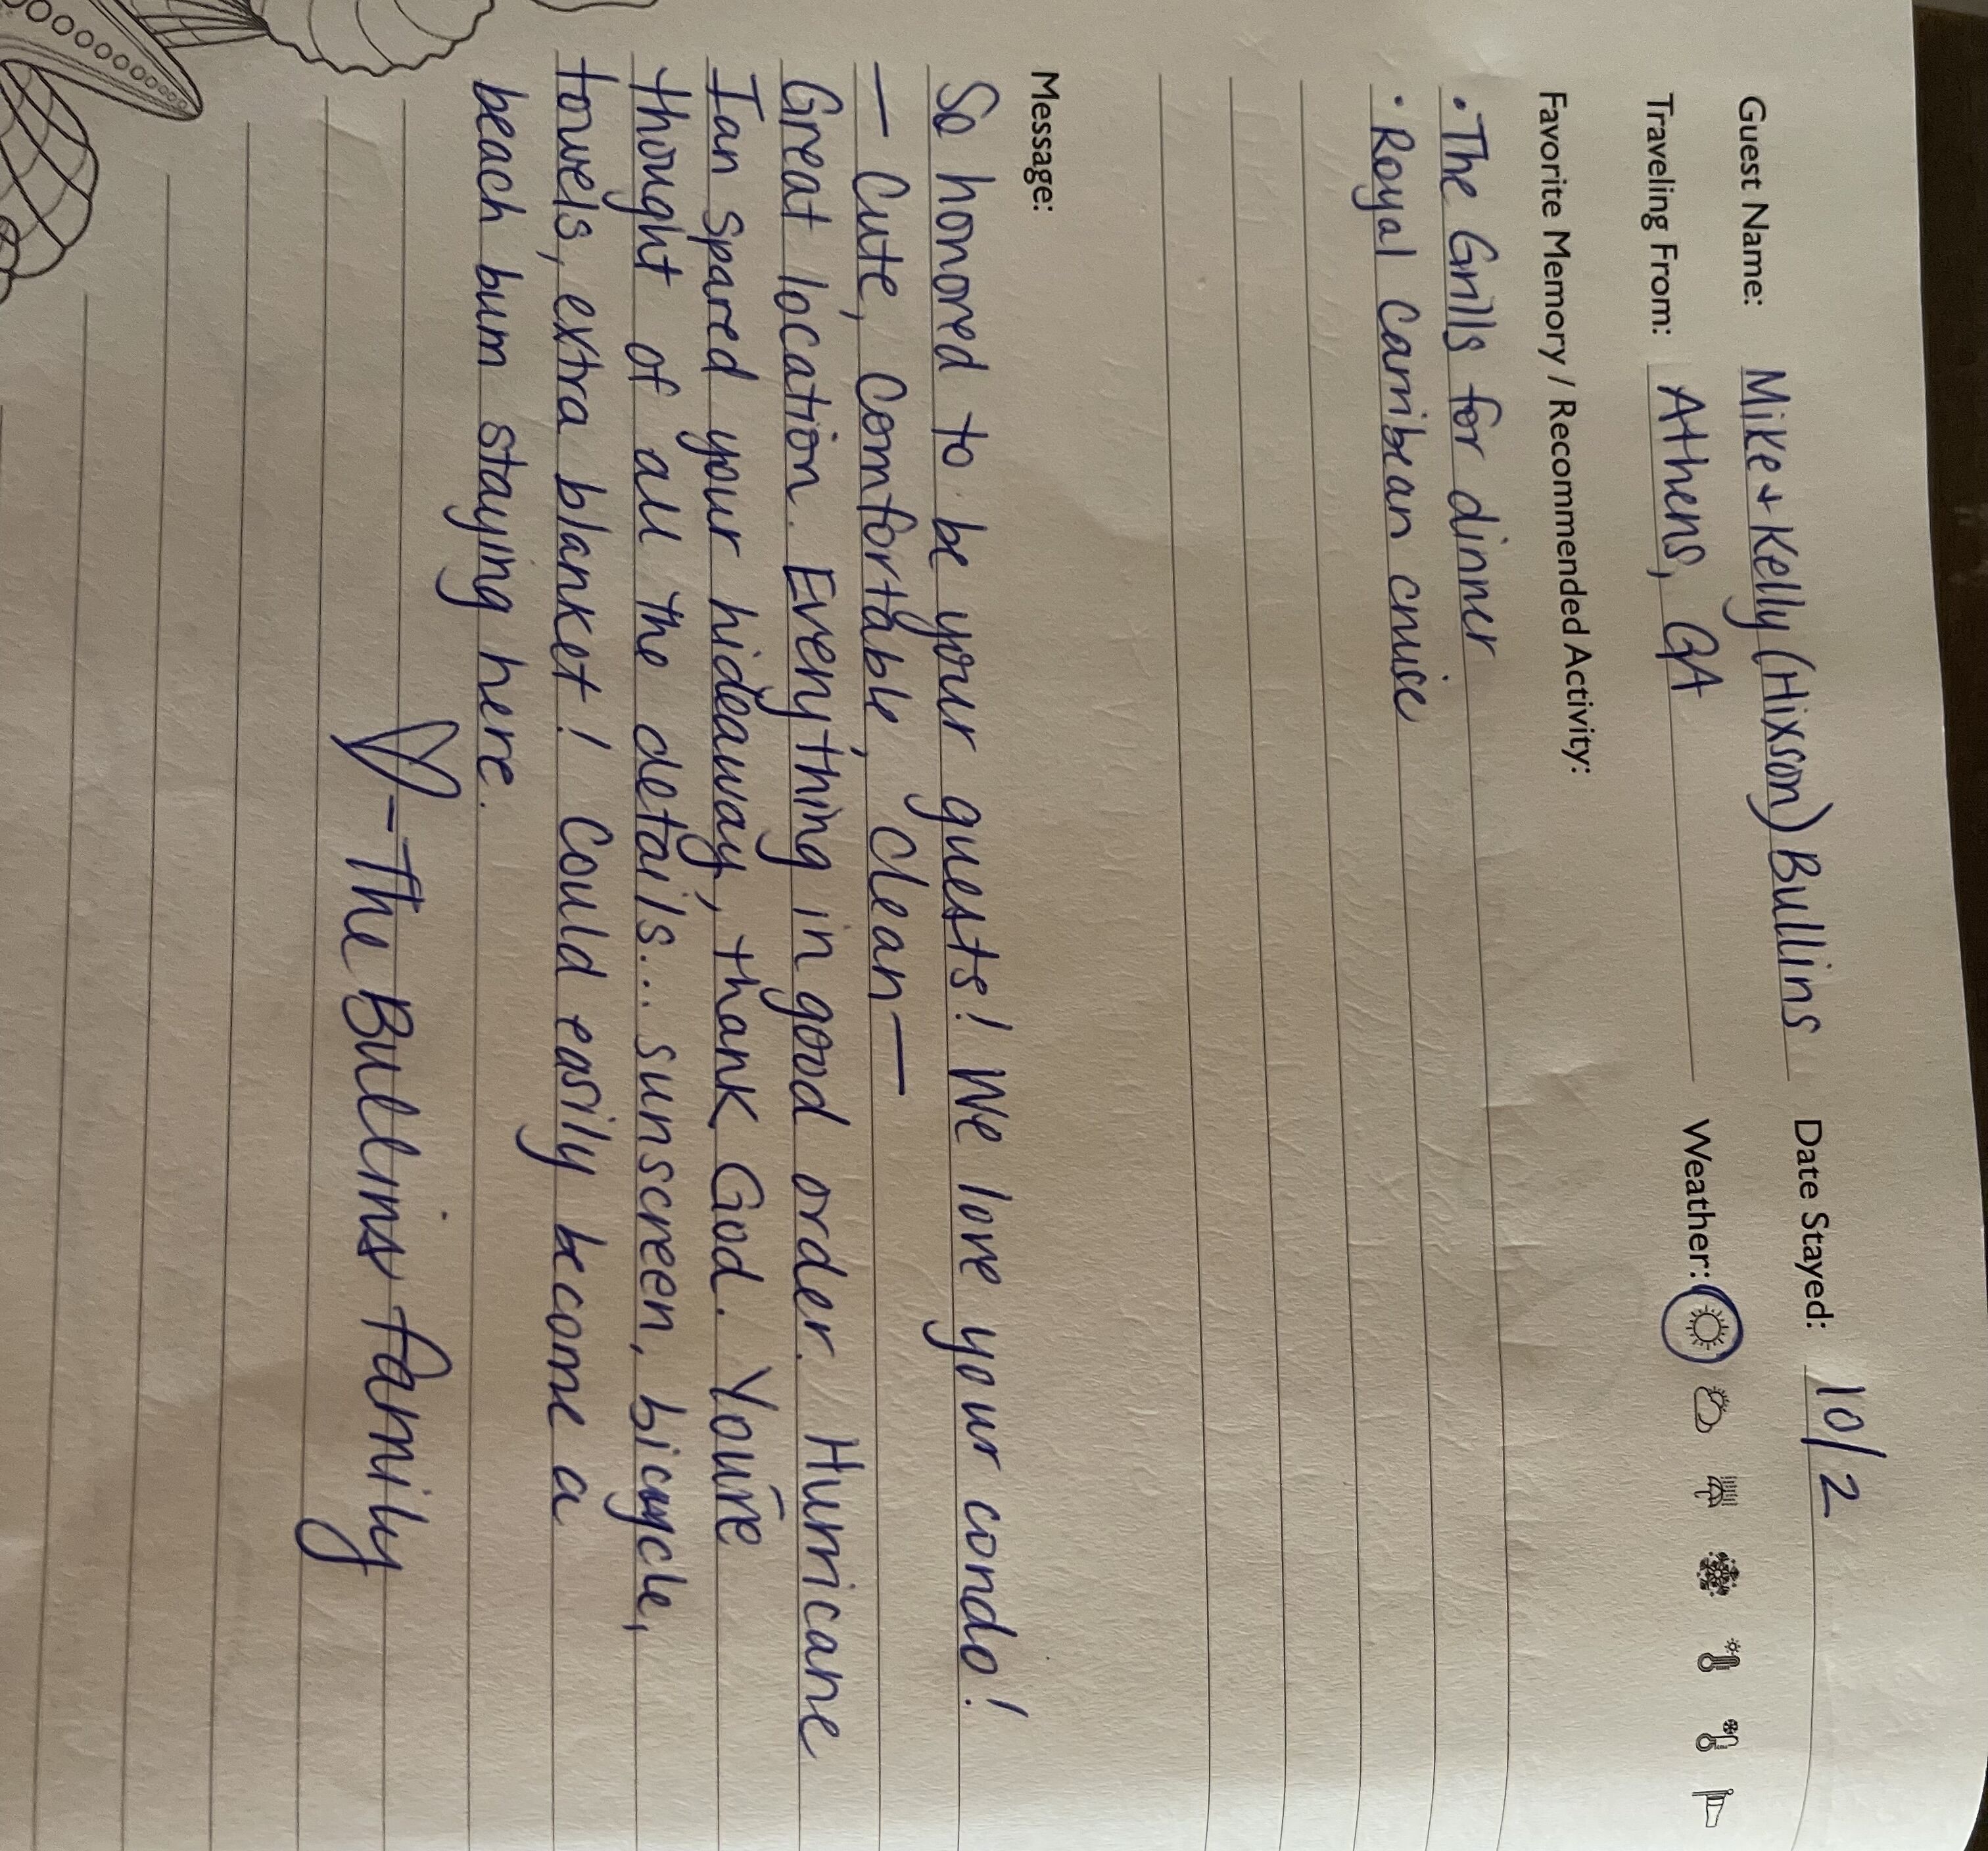 Guest Name: Mike + Kelly (Hixson) Bullins Date Stayed: 10/2
Traveling From: Athens, GA Weather:
Favorite Memory / Recommended Activity:
• The Grills for dinner
• Royal Carribean cruise
Message:
So honored to be your guests! We love your condo!
— Cute, Comfortable, Clean —
Great location. Everything in good order. Hurricane
Ian spared your hideaway, thank God. You're
thought of all the details... sunscreen, bicycle,
towels, extra blanket! Could easily become a
beach bum staying here.
♡ - The Bullins family